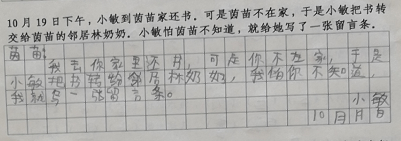 10月19日下午，小敏到茵苗家还书。可是茵苗不在家，于是小敏把书转
交给茵苗的邻居林奶奶。小敏怕茵苗不知道，就给她写了一张留言条。
茵苗：
我去你家里还书，可是你不在家，于是
小敏把书转给邻居林奶奶，我怕你不知道，
我就写一张留言条。
小敏
10月月日